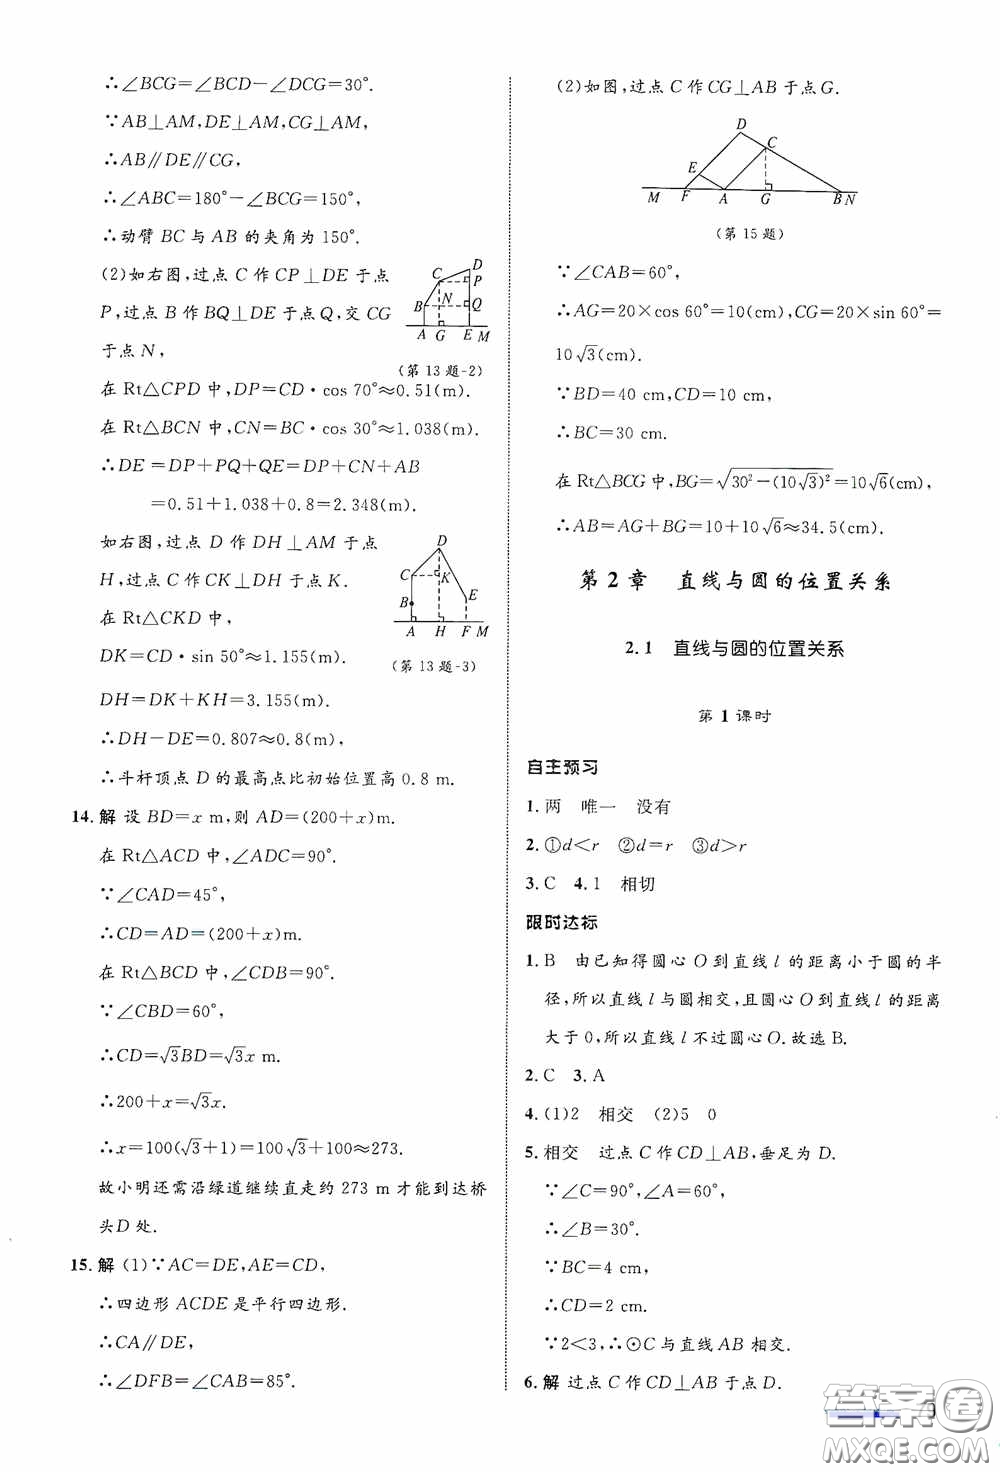 ∴∠BCG=∠BCD-∠DCG=30°.
∵AB⊥AM,DE⊥AM,CG⊥AM,
∴AB∥DE∥CG,
∴∠ABC=180°-∠BCG=150°,
∴动臂 BC 与 AB 的夹角为 150°.
(2)如右图,过点 C 作 CP⊥DE 于点
P,过点 B 作 BQ⊥DE 于点 Q,交 CG
于点 N,
C D P B N Q A G E M
(第 13 题-2)
在 Rt△CPD 中,DP=CD·cos 70°≈0.51(m).
在 Rt△BCN 中,CN=BC·cos 30°≈1.038(m).
∴DE=DP+PQ+QE=DP+CN+AB
=0.51+1.038+0.8=2.348(m).
如右图,过点 D 作 DH⊥AM 于点
H,过点 C 作 CK⊥DH 于点 K.
在 Rt△CKD 中,
DK=CD·sin 50°≈1.155(m).
D C K B E A H F M
(第 13 题-3)
DH=DK+KH=3.155(m).
∴DH-DE=0.807≈0.8(m),
∴斗杆顶点 D 的最高点比初始位置高 0.8 m.
14. 解 设 BD=x m,则 AD=(200+x)m.
在 Rt△ACD 中,∠ADC=90°.
∵∠CAD=45°,
∴CD=AD=(200+x)m.
在 Rt△BCD 中,∠CDB=90°.
∵∠CBD=60°,
∴CD=√3BD=√3x m.
∴200+x=√3x.
∴x=100(√3+1)=100√3+100≈273.
故小明还需沿绿道继续直走约 273 m 才能到达桥
头 D 处.
15. 解 (1)∵AC=DE,AE=CD,
∴四边形 ACDE 是平行四边形.
∴CA∥DE,
∴∠DFB=∠CAB=85°.
(2)如图,过点 C 作 CG⊥AB 于点 G.
D C E M F A G B N
(第 15 题)
∵∠CAB=60°,
∴AG=20×cos 60°=10(cm),CG=20×sin 60°=
10√3(cm).
∵BD=40 cm,CD=10 cm,
∴BC=30 cm.
在 Rt△BCG 中,BG=√(30²-(10√3)²)=10√6(cm),
∴AB=AG+BG=10+10√6≈34.5(cm).
第 2 章 直线与圆的位置关系
2.1 直线与圆的位置关系
第 1 课时
自主预习
1. 两 唯一 没有
2. ①d<r ②d=r ③d>r
3. C 4. 1 相切
限时达标
1. B 由已知得圆心 O 到直线 l 的距离小于圆的半
径,所以直线 l 与圆相交,且圆心 O 到直线 l 的距离
大于 0,所以直线 l 不过圆心 O.故选 B.
2. C 3. A
4. (1)2 相交 (2)5 0
5. 相交 过点 C 作 CD⊥AB,垂足为 D.
∵∠C=90°,∠A=60°,
∴∠B=30°.
∵BC=4 cm,
∴CD=2 cm.
∵2<3,∴⊙C 与直线 AB 相交.
6. 解 过点 C 作 CD⊥AB 于点 D.
答案圈
9
MXQE.COM